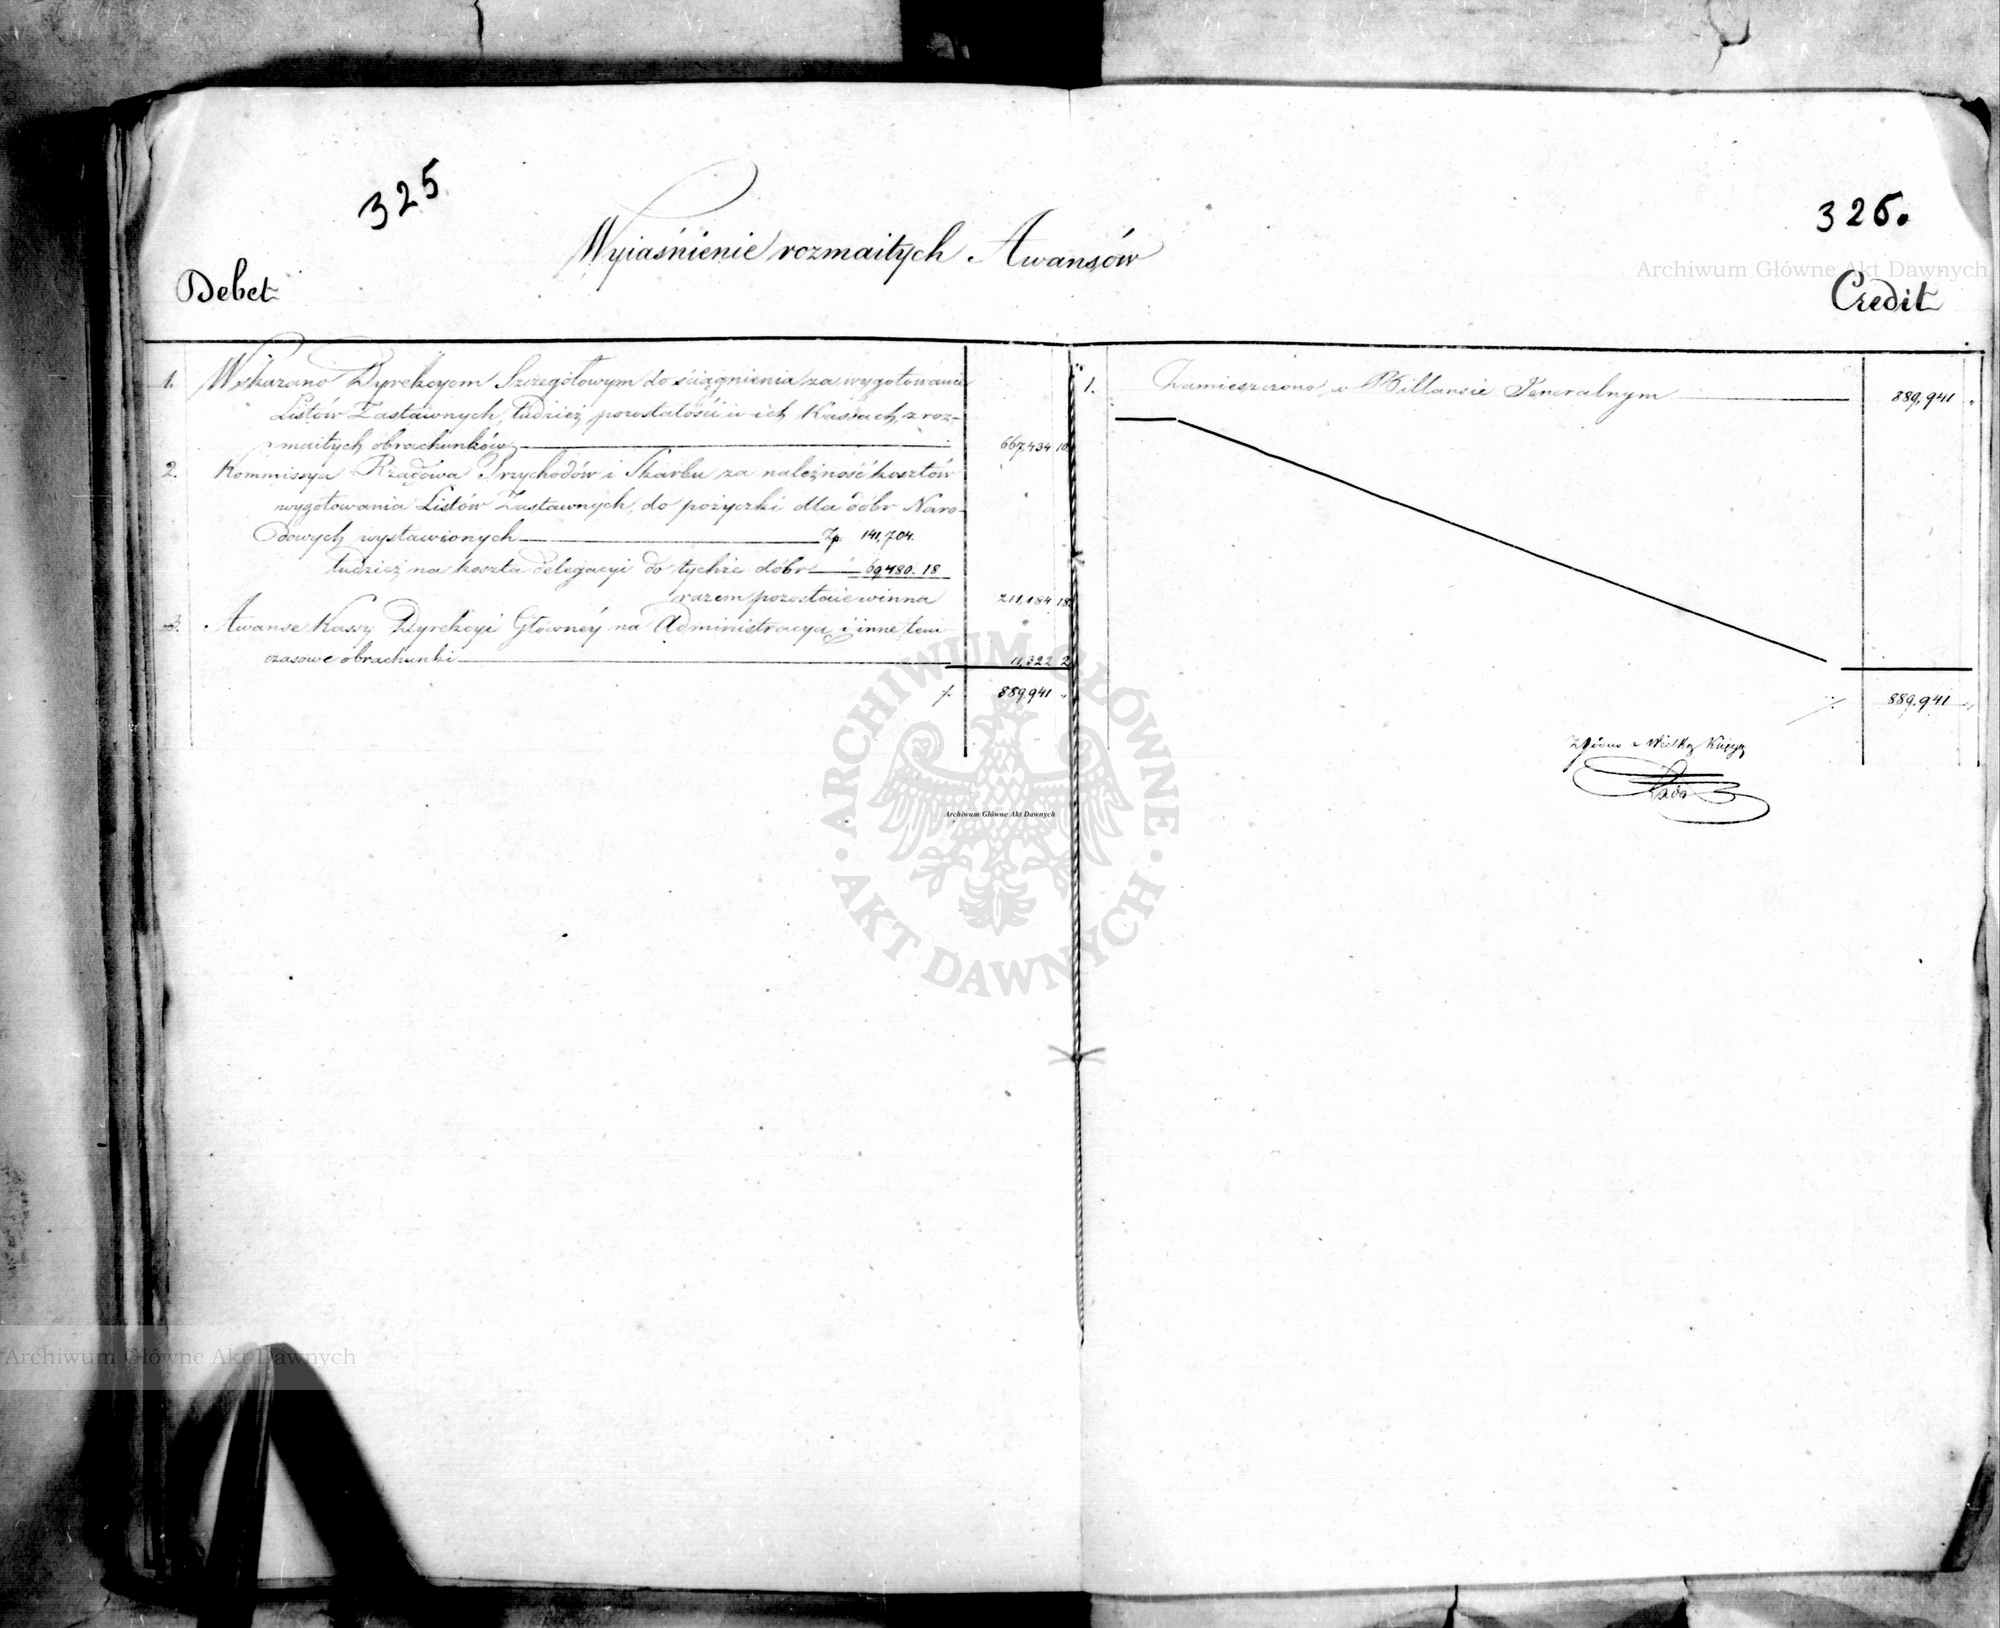 325
326.
Wyiaśnienie rozmaitych Awansów
Debet
Credit
1. Wskazano Dyrekcyom Szczegółowym do ściągnienia za wygotowanie
Listów Zastawnych, tudzież pozostałości w ich Kassach, z roz-
maitych obrachunków 667,434 10
2. Kommissya Rządowa Przychodów i Skarbu za należność kosztów
wygotowania Listów Zastawnych, do pożyczki dla dóbr Naro-
dowych wystawionych Zp. 141,704.
tudzież na koszta delegacyi do tychże dóbr 69480. 18
razem pozostaie winna 211,184 18
3. Awanse Kassy Dyrekcyi Główney na Administracyą i inne tem-
czasowe obrachunki 11,322 2
889,941
1. Zamieszczono w Billansie Jeneralnym 889,941
889.941
Zgodno z Wielką Księgą
Archiwum Główne Akt Dawnych
ARCHIWUM GŁÓWNE
AKT DAWNYCH
Archiwum Główne Akt Dawnych
Archiwum Główne Akt Dawnych